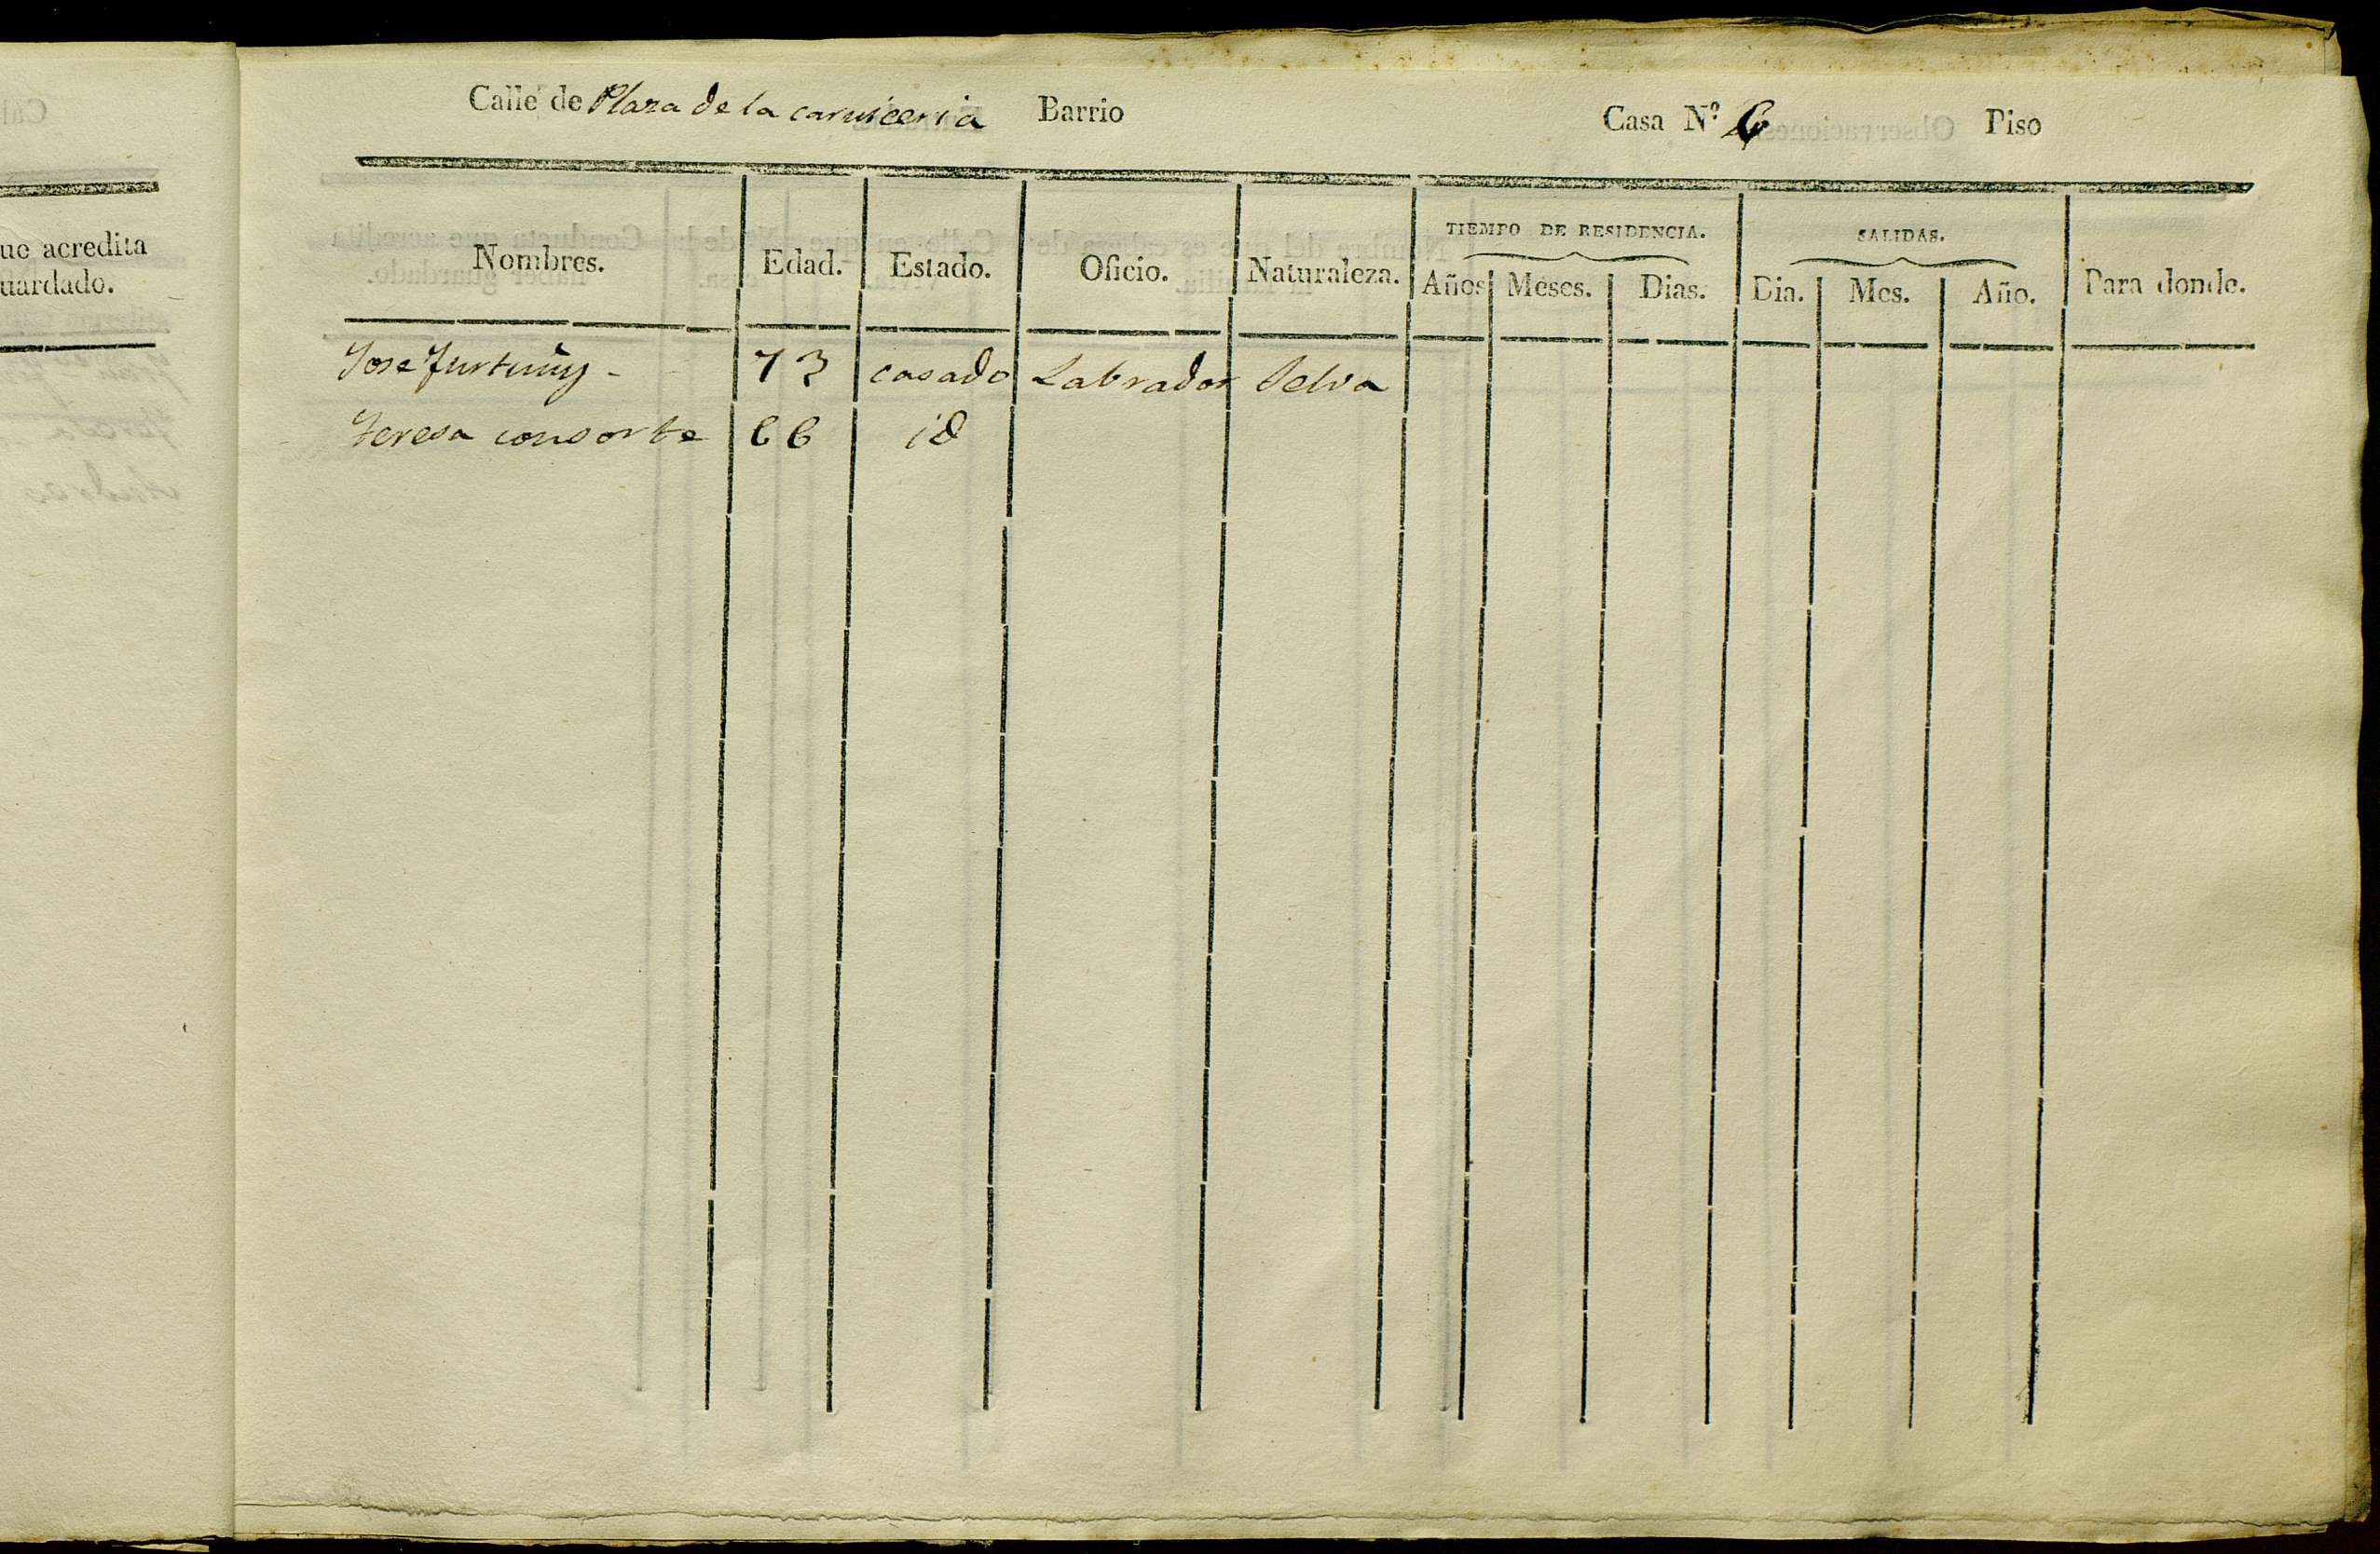 ue acredita
uardado.
Calle de Plaza de la carniceria Barrio Casa Nº 6 Piso
Nombres. Edad. Estado. Oficio. Naturaleza. TIEMPO DE RESIDENCIA. Años Meses. Dias. SALIDAS. Dia. Mes. Año. Para donde.
Jose Furtuñy - 73 casado Labrador Selva
Teresa consorte 66 id